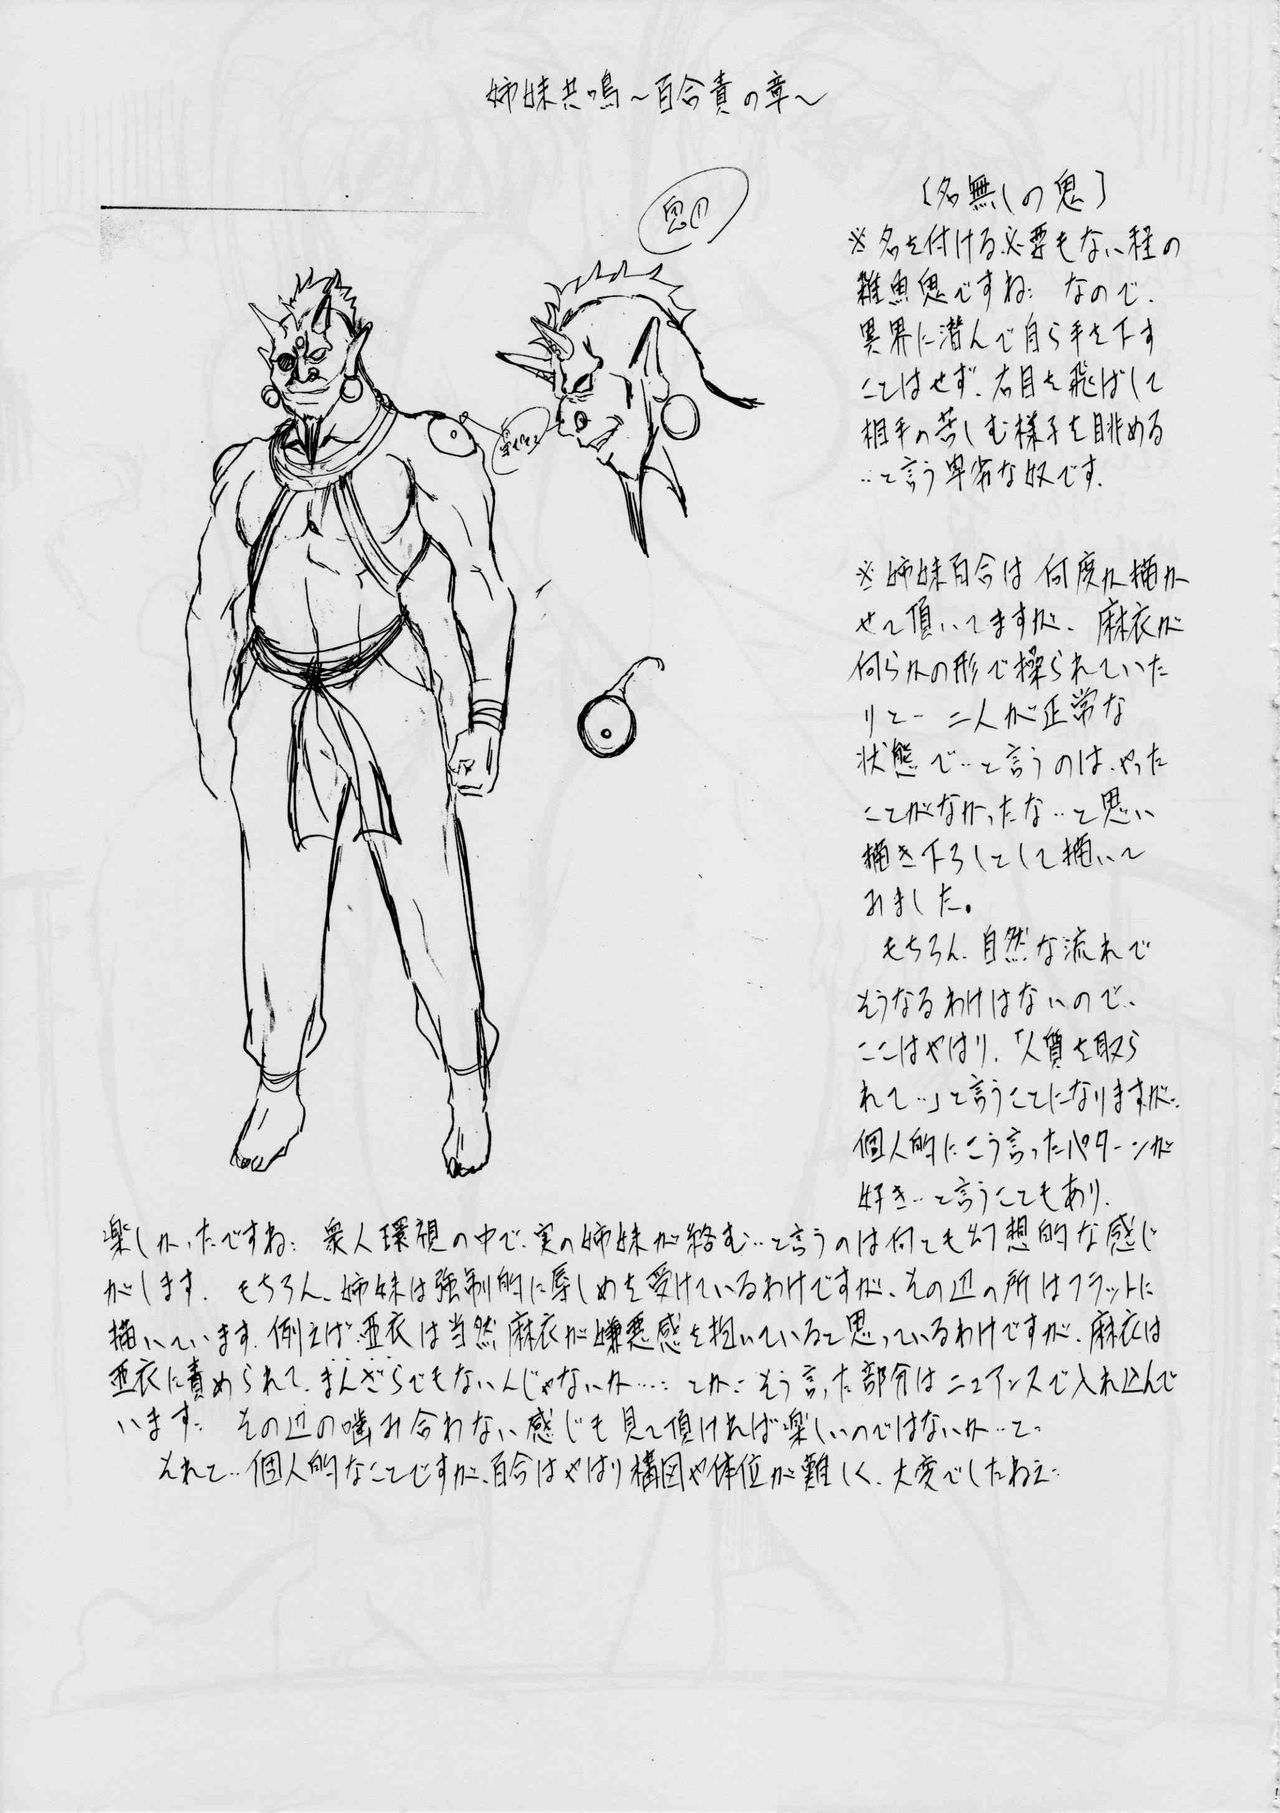 姉妹共鳴～百合責の章～
鬼①
[名無しの鬼]
※名を付ける必要もない程の
雑魚鬼ですね… なので、
異界に潜んで自ら手を下す
ことはせず、右目を飛ばして
相手の苦しむ様子を眺める
…と言う卑劣な奴です。
※姉妹百合は何度か描か
せて頂いてますが、麻衣が
何らかの形で操られていた
りと… 二人が正常な
状態で…と言うのは、やった
ことがなかったな…と思い
描き下ろしとして描いて
みました。
もちろん、自然な流れで
そうなるわけはないので、
ここはやはり、「人質を取ら
れて…」と言うことになりますが…
個人的にこう言ったパターンが
好き…と言うこともあり、
楽しかったですね… 衆人環視の中で、実の姉妹が絡む…と言うのは何とも幻想的な感じ
がします。 もちろん、姉妹は強制的に辱しめを受けているわけですが、その辺の所はフラットに
描いています。例えば、亜衣は当然麻衣が嫌悪感を抱いていると思っているわけですが、麻衣は
亜衣に責められて、まんざらでもないんじゃないか…… とか… そう言った部分はニュアンスで入れ込んで
います… その辺の噛み合わない感じも見て頂ければ楽しいのではないか…と…
それて… 個人的なことですが、百合はやはり構図や体位が難しく、大変でしたねェ…